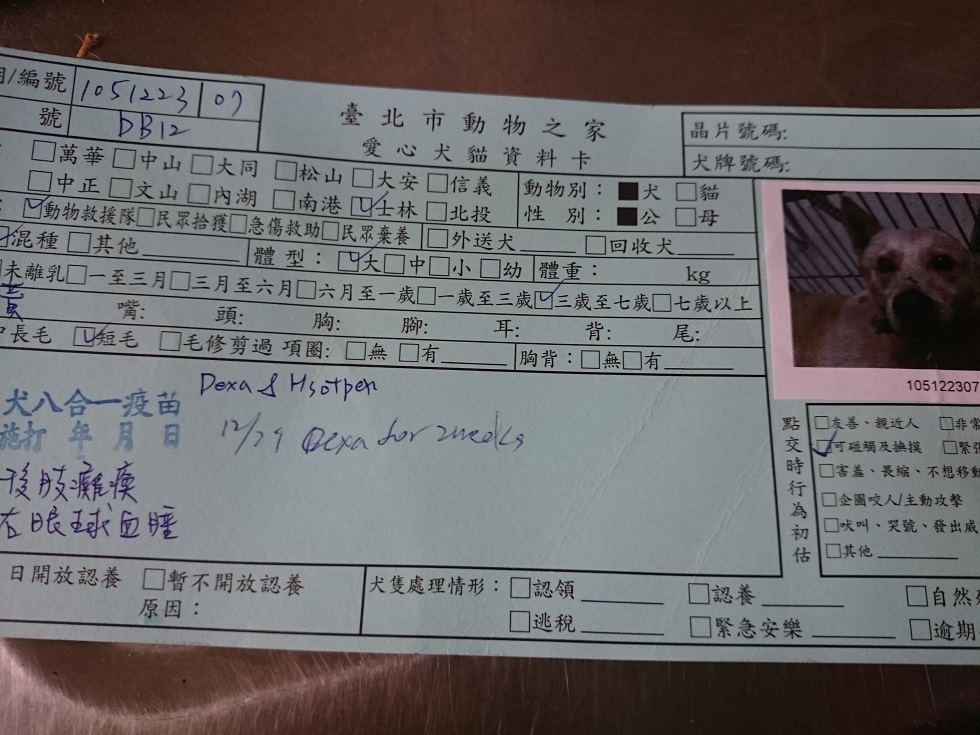 /編號 1051223 07
號 DB12
臺北市動物之家
愛心犬貓資料卡
晶片號碼:
犬牌號碼:
□萬華 □中山 □大同 □松山 □大安 □信義
□中正 □文山 □內湖 □南港 ☑士林 □北投
動物別： ■犬 □貓
性 別： ■公 □母
☑動物救援隊 □民眾拾獲 □急傷救助 □民眾棄養 □外送犬 □回收犬
☑混種 □其他 體 型： ☑大 □中 □小 □幼 體重： kg
□未離乳 □一至三月 □三月至六月 □六月至一歲 □一歲至三歲 ☑三歲至七歲 □七歲以上
嘴: 頭: 胸: 腳: 耳: 背: 尾:
長毛 ☑短毛 □毛修剪過 項圈: □無 □有 胸背： □無 □有
105122307
犬八合一疫苗
施打 年 月 日
Dexa & H
12/29 Dexa for 2 weeks
後肢癱瘓
右眼球血腫
點交時行為初估
□友善、親近人 □非常
☑可碰觸及撫摸 □緊
□害羞、畏縮、不想移動
□企圖咬人/主動攻擊
□吠叫、哭號、發出威
□其他
日開放認養 □暫不開放認養
原因：
犬隻處理情形： □認領 □認養 □自然
□逃稅 □緊急安樂 □逾期